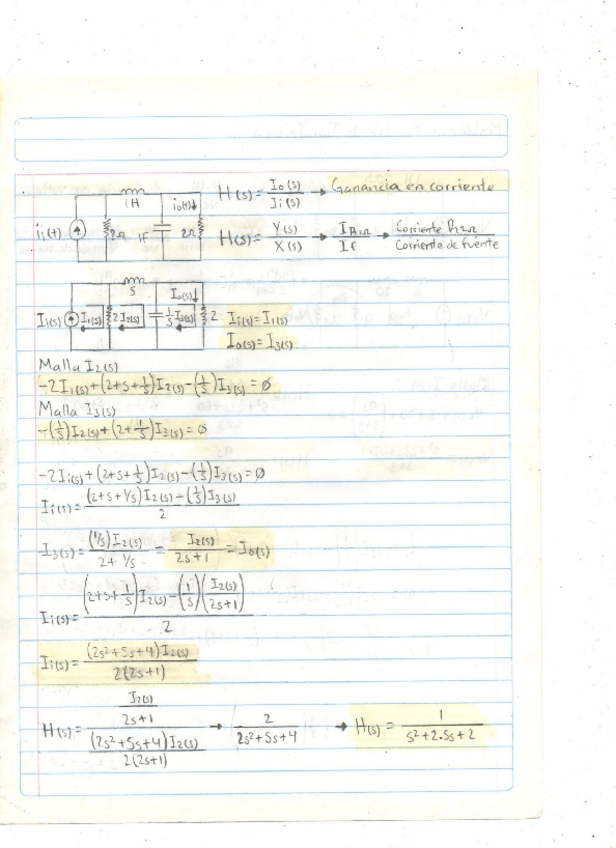 1H
i₀(t)↓
ii(t)
2Ω
1F
2Ω
H(s) = I₀(s)/Ii(s) → Ganancia en corriente
H(s) = Y(s)/X(s) → I R2Ω/If → Corriente R2Ω/Corriente de fuente
S
I₀(s)↓
Ii(s)
I₁(s)
2
I₂(s)
1/S
I₃(s)
2
Ii(s) = I₁(s)
I₀(s) = I₃(s)
Malla I₂(s)
-2I₁(s)+(2+s+1/s)I₂(s)-(1/s)I₃(s)=0
Malla I₃(s)
-(1/s)I₂(s)+(2+1/s)I₃(s)=0
-2Ii(s)+(2+s+1/s)I₂(s)-(1/s)I₃(s)=0
Ii(s)=((2+s+1/s)I₂(s)-(1/s)I₃(s))/2
I₃(s)=((1/s)I₂(s))/(2+1/s) = I₂(s)/(2s+1) = I₀(s)
Ii(s)=((2+s+1/s)I₂(s)-(1/s)(I₂(s)/(2s+1)))/2
Ii(s)=((2s²+5s+4)I₂(s))/(2(2s+1))
H(s)=(I₂(s)/(2s+1))/((2s²+5s+4)I₂(s)/(2(2s+1))) → 2/(2s²+5s+4) → H(s)=1/(s²+2.5s+2)